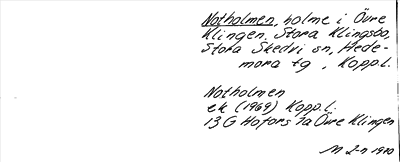 Notholmen, holme i Övre
Klingen. Stora Klingsbo,
Stora Skedvi sn, Hede-
mora tg, Koppl.
Notholmen
ek (1969) Koppl.
13 G Hofors 7a Övre Klingen